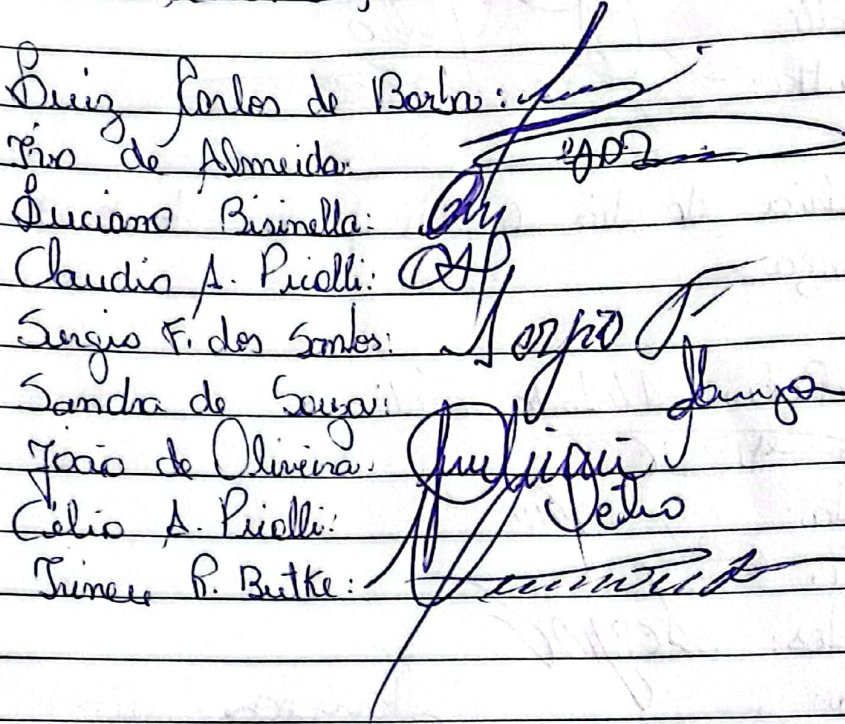 Luiz Carlos de Borba:
Ivo de Almeida:
Luciano Bisinella:
Claudio A. Picolli:
Sergio F. dos Santos: Sergio F
Sandra de Souza: Souza
João de Oliveira:
Célio A. Picolli: Celio
Irineu R. Butke: